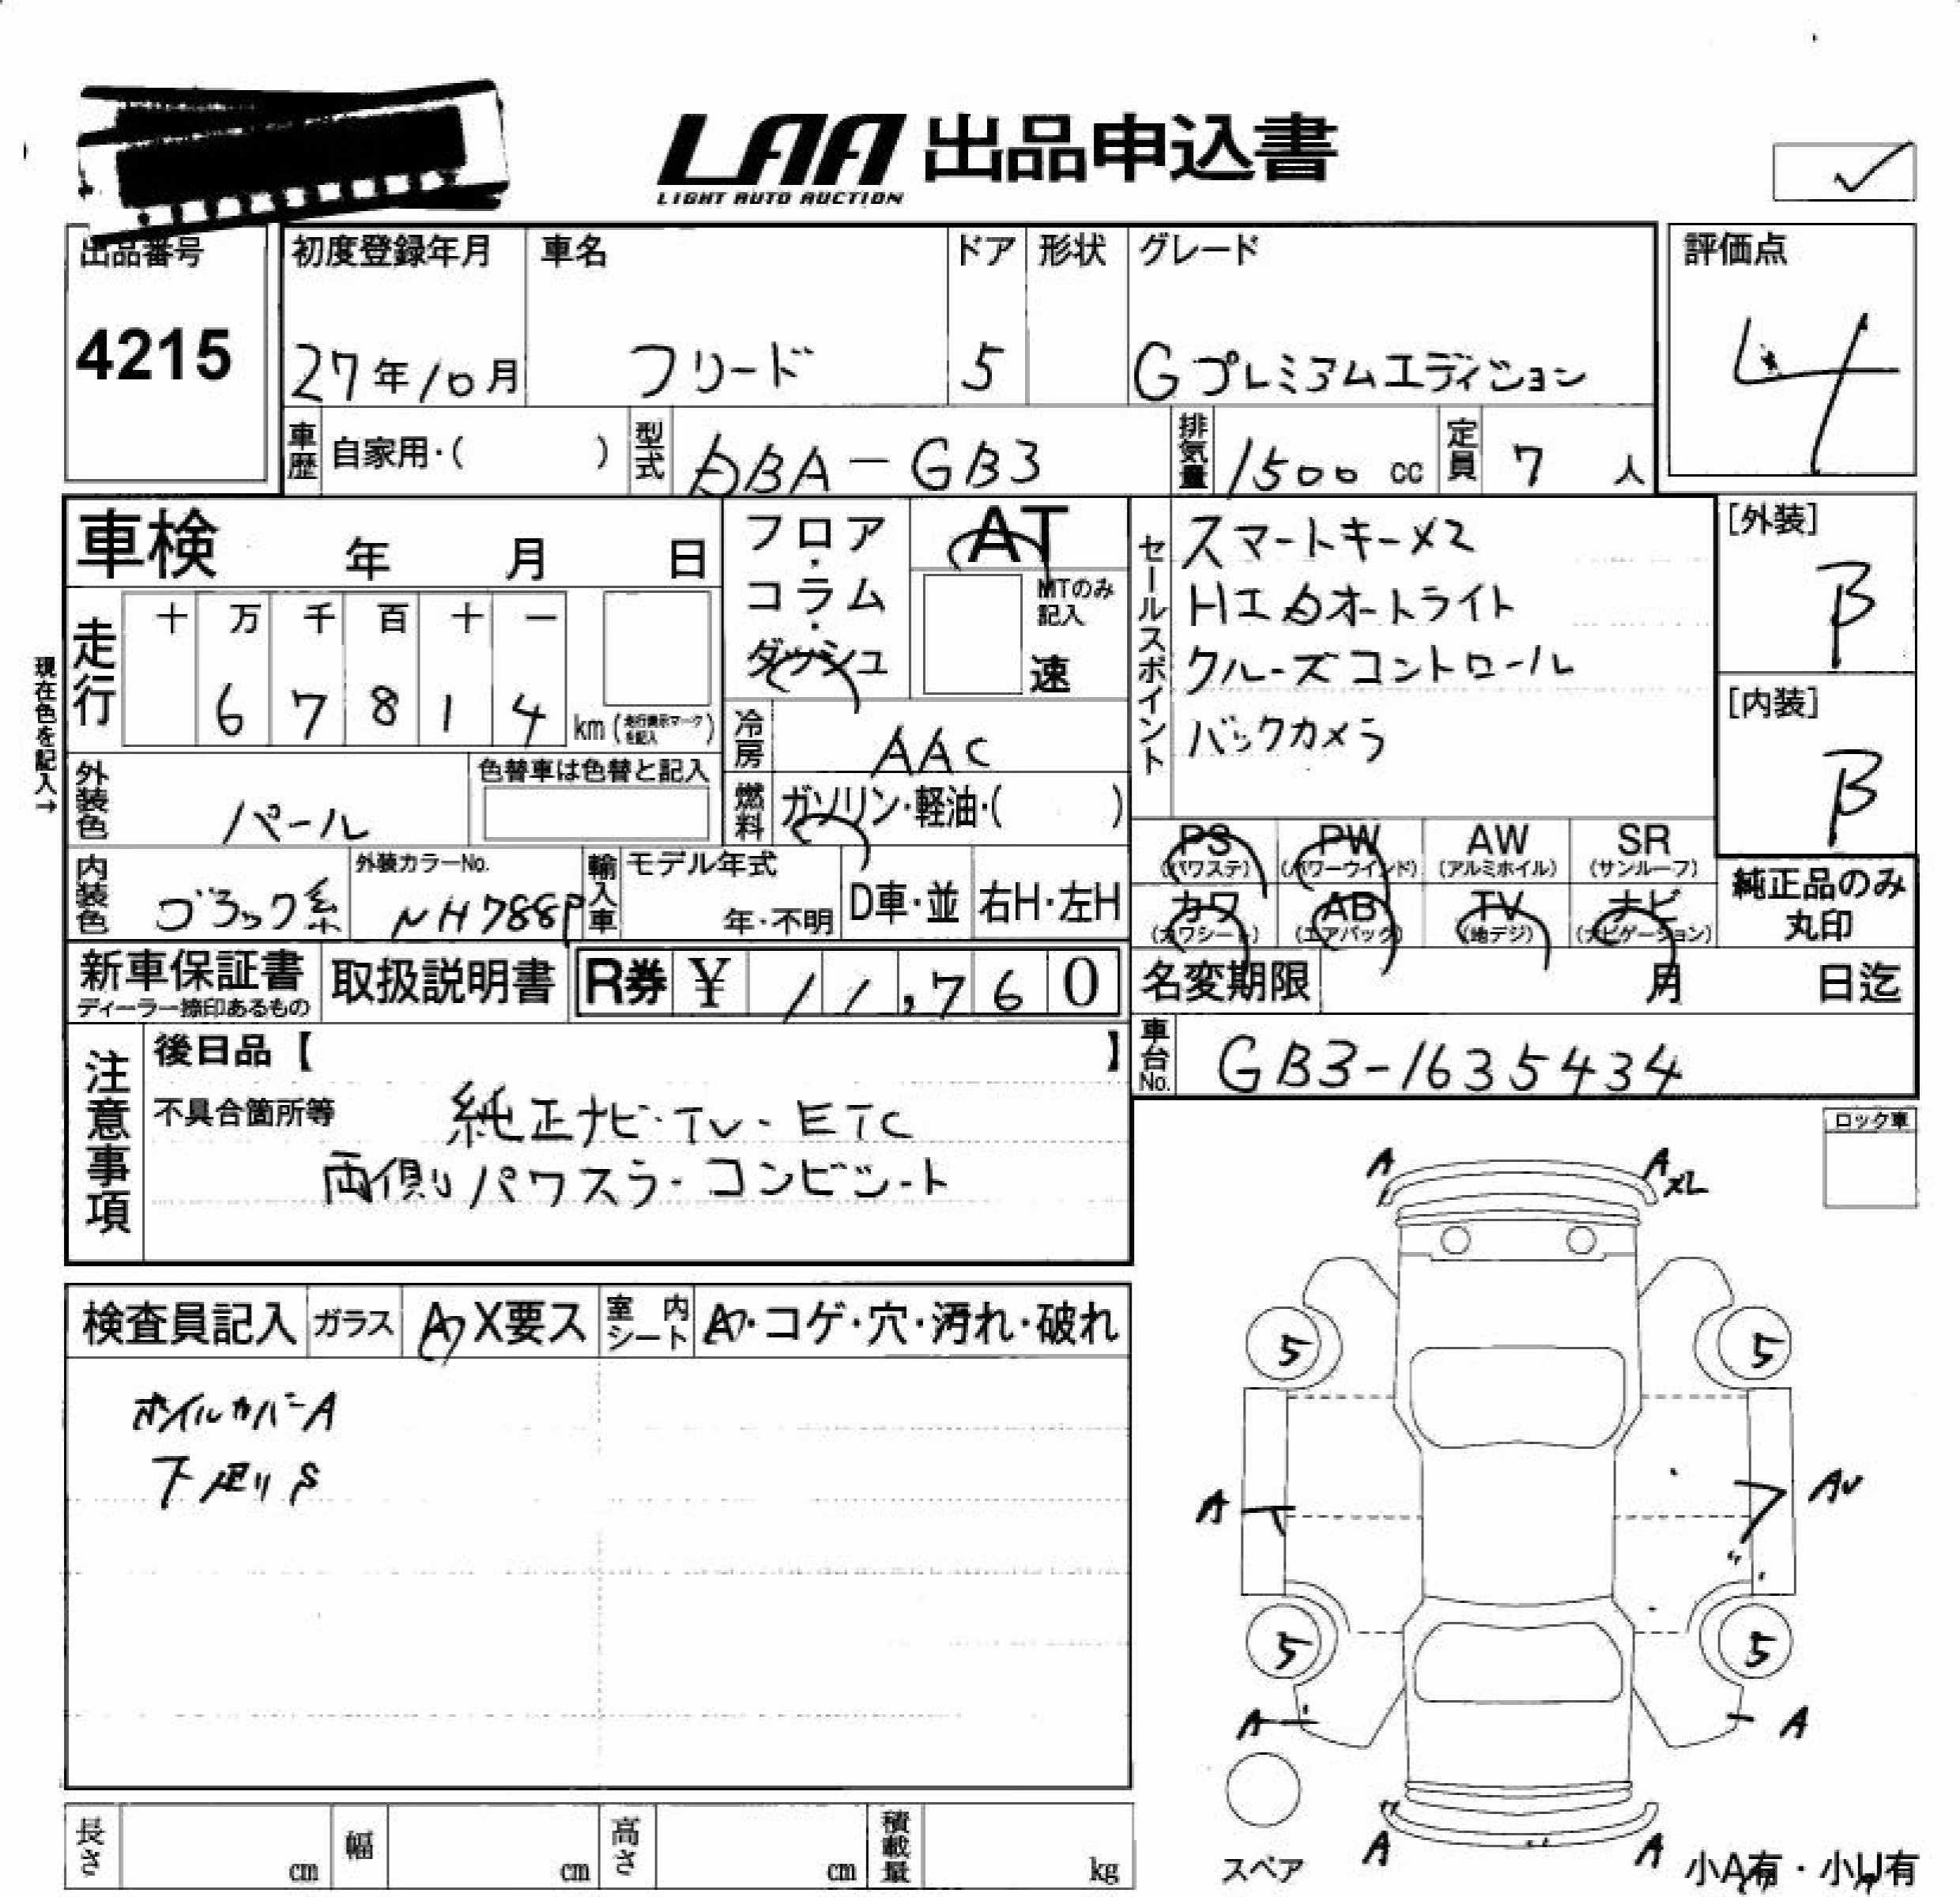 LAA 出品申込書
LIGHT AUTO AUCTION
出品番号 初度登録年月 車名 ドア 形状 グレード 評価点
4215 27年10月 フリード 5 Gプレミアムエディション 4
車歴 自家用・( ) 型式 DBA-GB3 排気量 1500 cc 定員 7 人
車検 年 月 日
フロア・コラム・ダッシュ AT
MTのみ記入
速
セールスポイント
スマートキー×2
HIDオートライト
クルーズコントロール
バックカメラ
[外装]
B
[内装]
B
現在色を記入→
走行 十 万 千 百 十 一
6 7 8 1 4 km (走行表示マークを記入)
冷房 AAC
外装色 パール 色替車は色替と記入
燃料 ガソリン・軽油・( )
内装色 ブラック系 外装カラーNo. NH788P
輸入車 モデル年式 年・不明 D車・並 右H・左H
PS (パワステ) PW (パワーウインド) AW (アルミホイル) SR (サンルーフ)
カワ (カワシート) AB (エアバック) TV (地デジ) ナビ (ナビゲーション)
純正品のみ
丸印
新車保証書 取扱説明書 R券 ¥ 11,760
ディーラー捺印あるもの
名変期限 月 日迄
車台No. GB3-1635434
注意事項
後日品【 】
不具合箇所等 純正ナビ・TV・ETC
両側パワスラ・コンビシート
ロック車
A A XL
検査員記入 ガラス A X要ス 室内シート A・コゲ・穴・汚れ・破れ
ホイルカバーA
下廻りS
5 5
A AU
5 5
A A
スペア
A A
小A有・小U有
長さ cm 幅 cm 高さ cm 積載量 kg